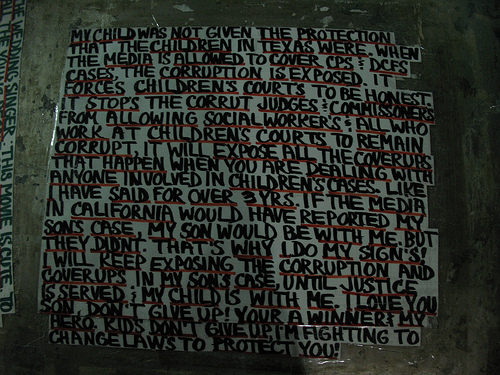 MY CHILD WAS NOT GIVEN THE PROTECTION
THAT THE CHILDREN IN TEXAS WERE. WHEN
THE MEDIA IS ALLOWED TO COVER CPS & DCFS
CASES, THE CORRUPTION IS EXPOSED. IT
FORCES CHILDREN'S COURTS TO BE HONEST.
IT STOPS THE CORRUT JUDGES & COMMISSIONERS
FROM ALLOWING SOCIAL WORKER'S & ALL WHO
WORK AT CHILDREN'S COURTS TO REMAIN
CORRUPT. IT WILL EXPOSE ALL THE COVERUPS
THAT HAPPEN WHEN YOU ARE DEALING WITH
ANYONE INVOLVED IN CHILDREN'S CASES. LIKE
I HAVE SAID FOR OVER 3 YRS. IF THE MEDIA
IN CALIFORNIA WOULD HAVE REPORTED MY
SON'S CASE, MY SON WOULD BE WITH ME. BUT
THEY DIDNT. THAT'S WHY I DO MY SIGN'S!
I WILL KEEP EXPOSING THE CORRUPTION AND
COVERUPS IN MY SON'S CASE, UNTIL JUSTICE
IS SERVED & MY CHILD IS WITH ME. I LOVE YOU
SON, DON'T GIVE UP! YOUR A WINNER & MY
HERO. KIDS DON'T GIVE UP I'M FIGHTING TO
CHANGE LAWS TO PROTECT YOU!
THE WEDDING SINGER. THIS MOVIE IS CUTE. TO